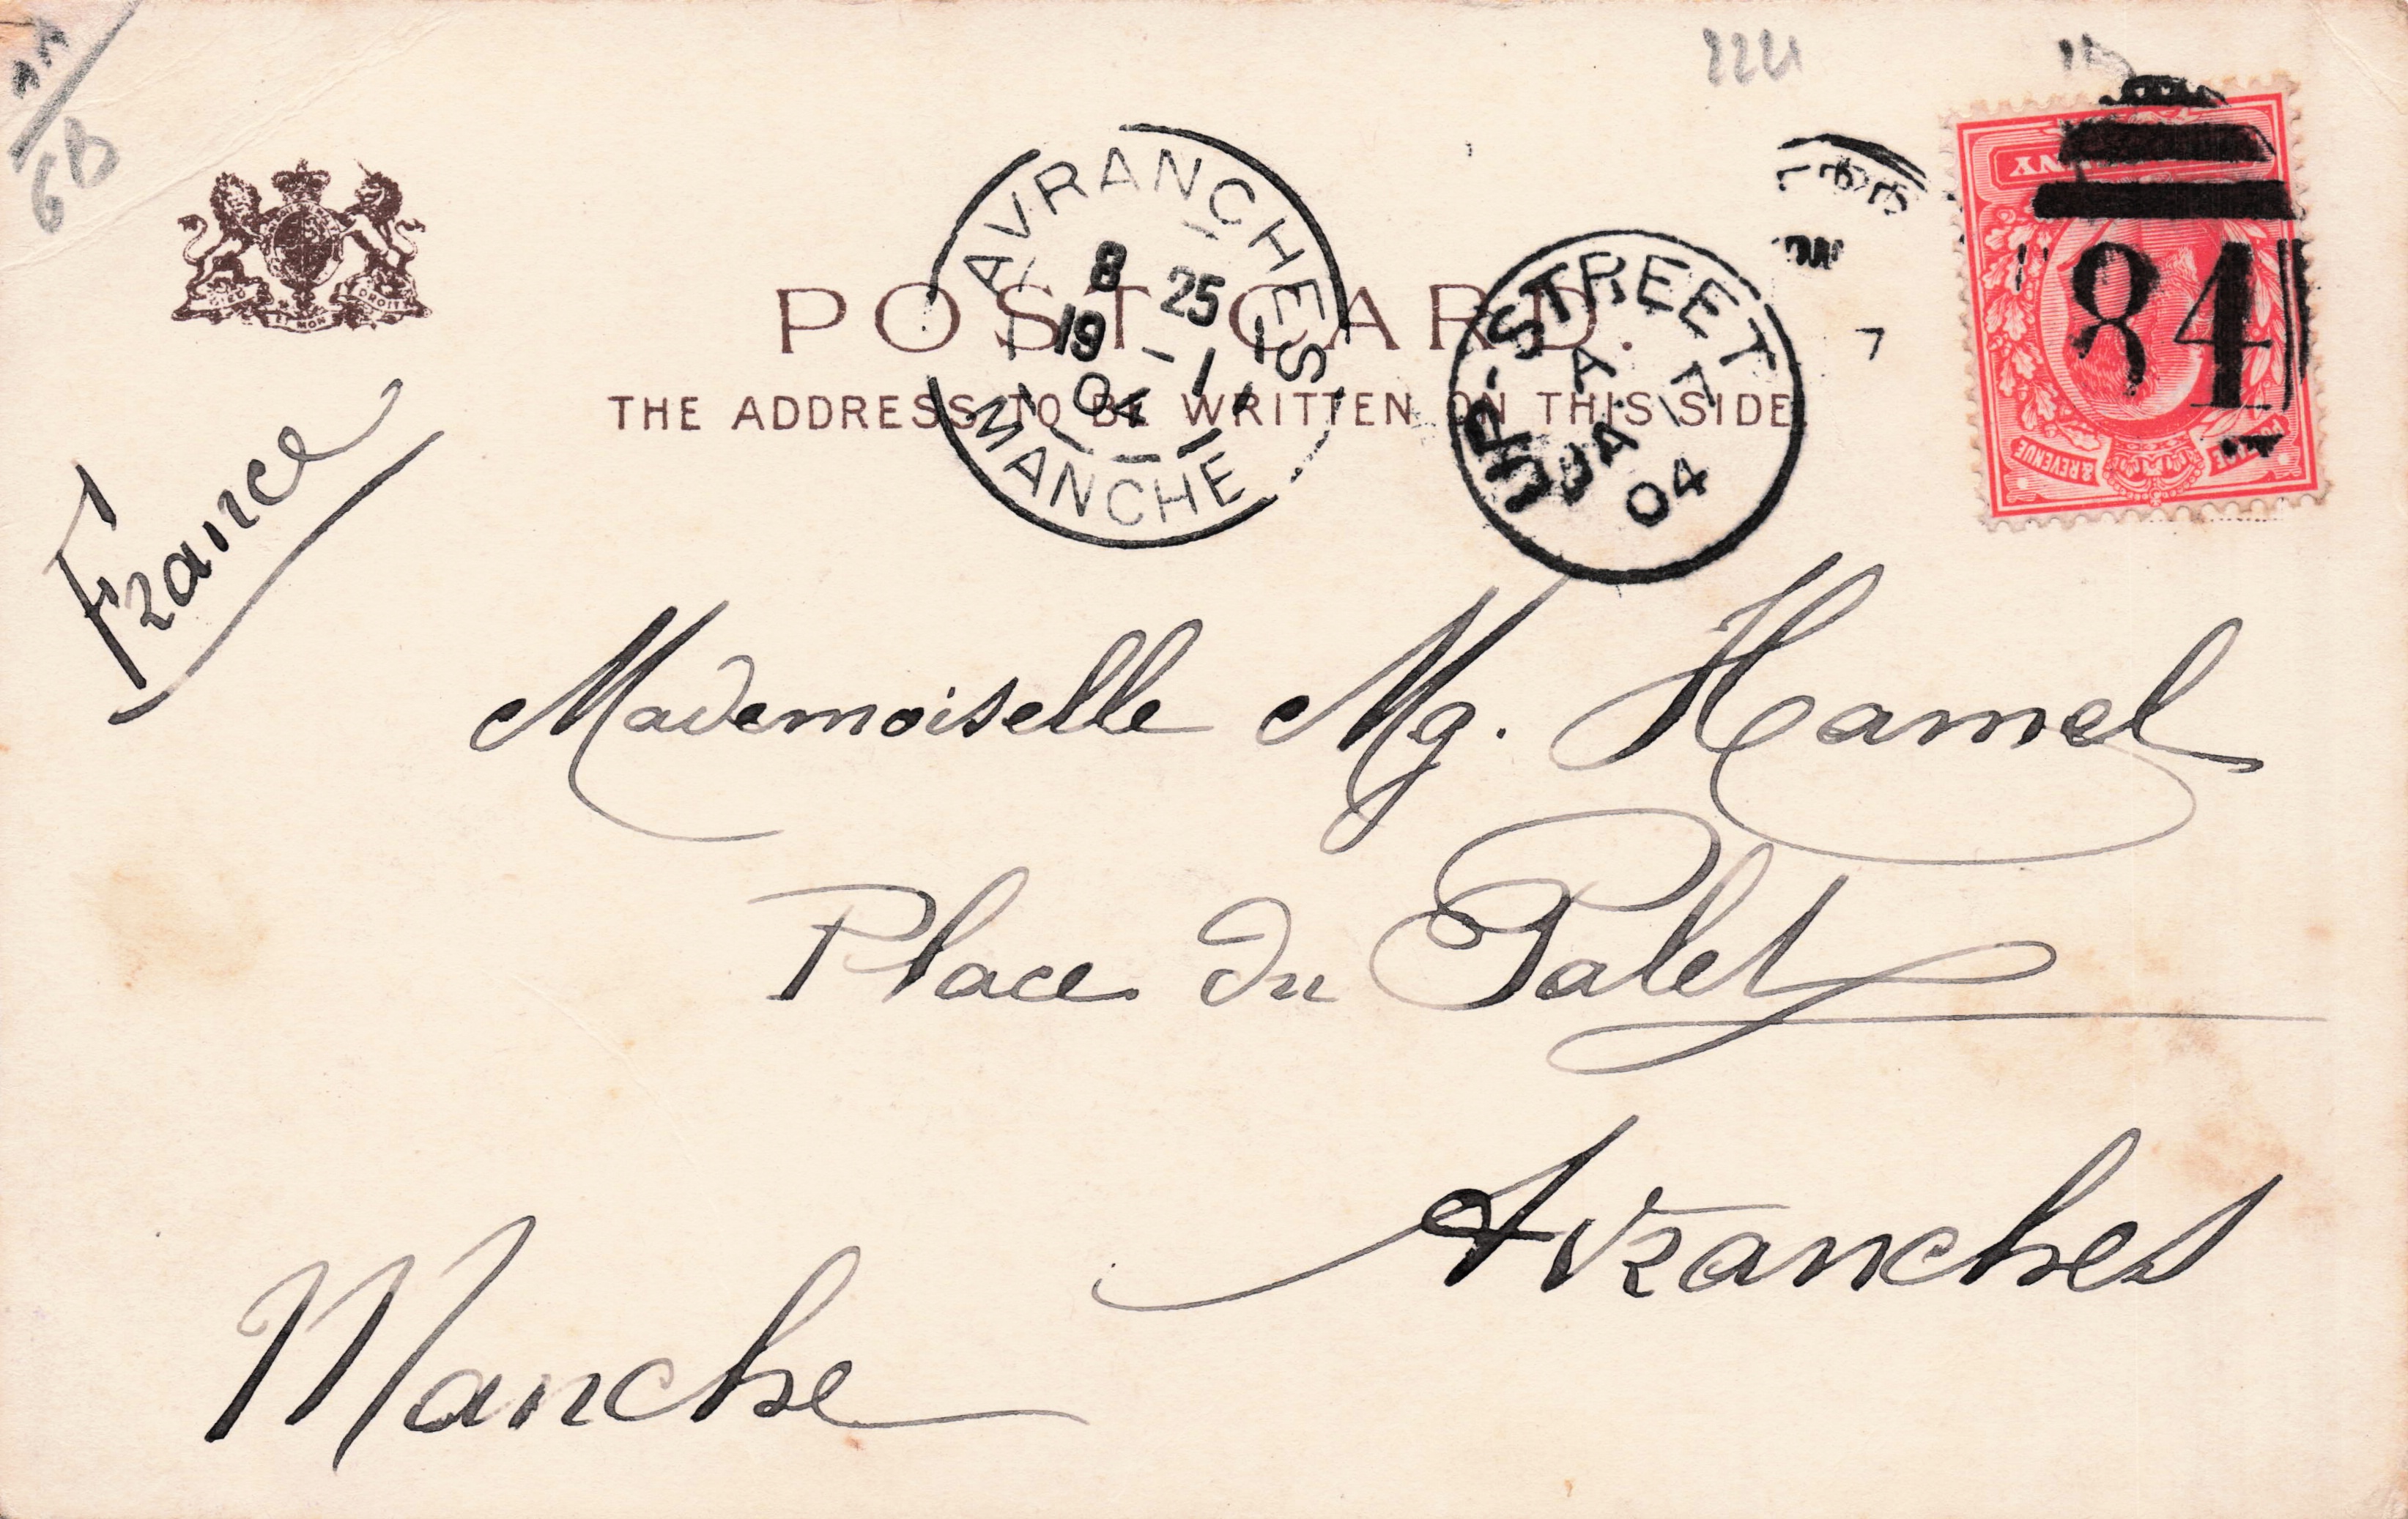 POST CARD.
THE ADDRESS TO BE WRITTEN ON THIS SIDE
AVRANCHES
8 25
19 - 1
04
MANCHE
UP-STREET
A
JA 17
04
7
84
& REVENUE
6D
France
Mademoiselle Mg. Hamel
Place du Palet
Avranches
Manche